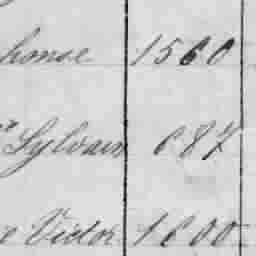 honse 1560
Sylvain 687
Victor 1600